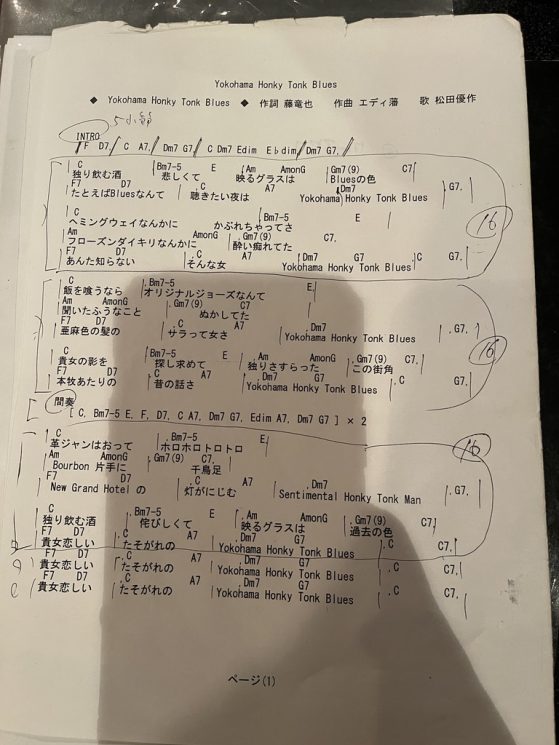 Yokohama Honky Tonk Blues
◆ Yokohama Honky Tonk Blues ◆ 作詞 藤竜也 作曲 エディ藩 歌 松田優作
INTRO
F D7, C A7, Dm7 G7, C Dm7 Edim Ebdim, Dm7 G7,
C Bm7-5 E Am AmonG Gm7(9) C7
独り飲む酒 悲しくて 映るグラスは Bluesの色
F7 D7 C A7 Dm7 G7,
たとえばBluesなんて 聴きたい夜は Yokohama Honky Tonk Blues
C Bm7-5 E
ヘミングウェイなんかに かぶれちゃってさ
16
Am AmonG Gm7(9) C7,
フローズンダイキリなんかに 酔い痴れてた
F7 D7 C A7 Dm7 G7 C G7,
あんた知らない そんな女 Yokohama Honky Tonk Blues
C Bm7-5 E
飯を喰うなら オリジナルジョーズなんて
Am AmonG Gm7(9) C7
聞いたふうなこと ぬかしてた
F7 D7 C A7 Dm7 G7,
亜麻色の髪の サラって女さ Yokohama Honky Tonk Blues
16
C Bm7-5 E Am AmonG Gm7(9) C7,
貴女の影を 探し求めて 独りさすらった この街角
F7 D7 C A7 Dm7 G7 C G7,
本牧あたりの 昔の話さ Yokohama Honky Tonk Blues
間奏
[ C, Bm7-5 E, F, D7, C A7, Dm7 G7, Edim A7, Dm7 G7 ] × 2
C Bm7-5 E
革ジャンはおって ホロホロトロトロ
16
Am AmonG Gm7(9) C7,
Bourbon 片手に 千鳥足
F7 D7 C A7 Dm7 G7,
New Grand Hotel の 灯がにじむ Sentimental Honky Tonk Man
C Bm7-5 E Am AmonG Gm7(9) C7
独り飲む酒 侘びしくて 映るグラスは 過去の色
F7 D7 C A7 Dm7 G7 C C7,
貴女恋しい たそがれの Yokohama Honky Tonk Blues
F7 D7 C A7 Dm7 G7 C C7,
貴女恋しい たそがれの Yokohama Honky Tonk Blues
F7 D7 C A7 Dm7 G7 C C7,
貴女恋しい たそがれの Yokohama Honky Tonk Blues
ページ(1)